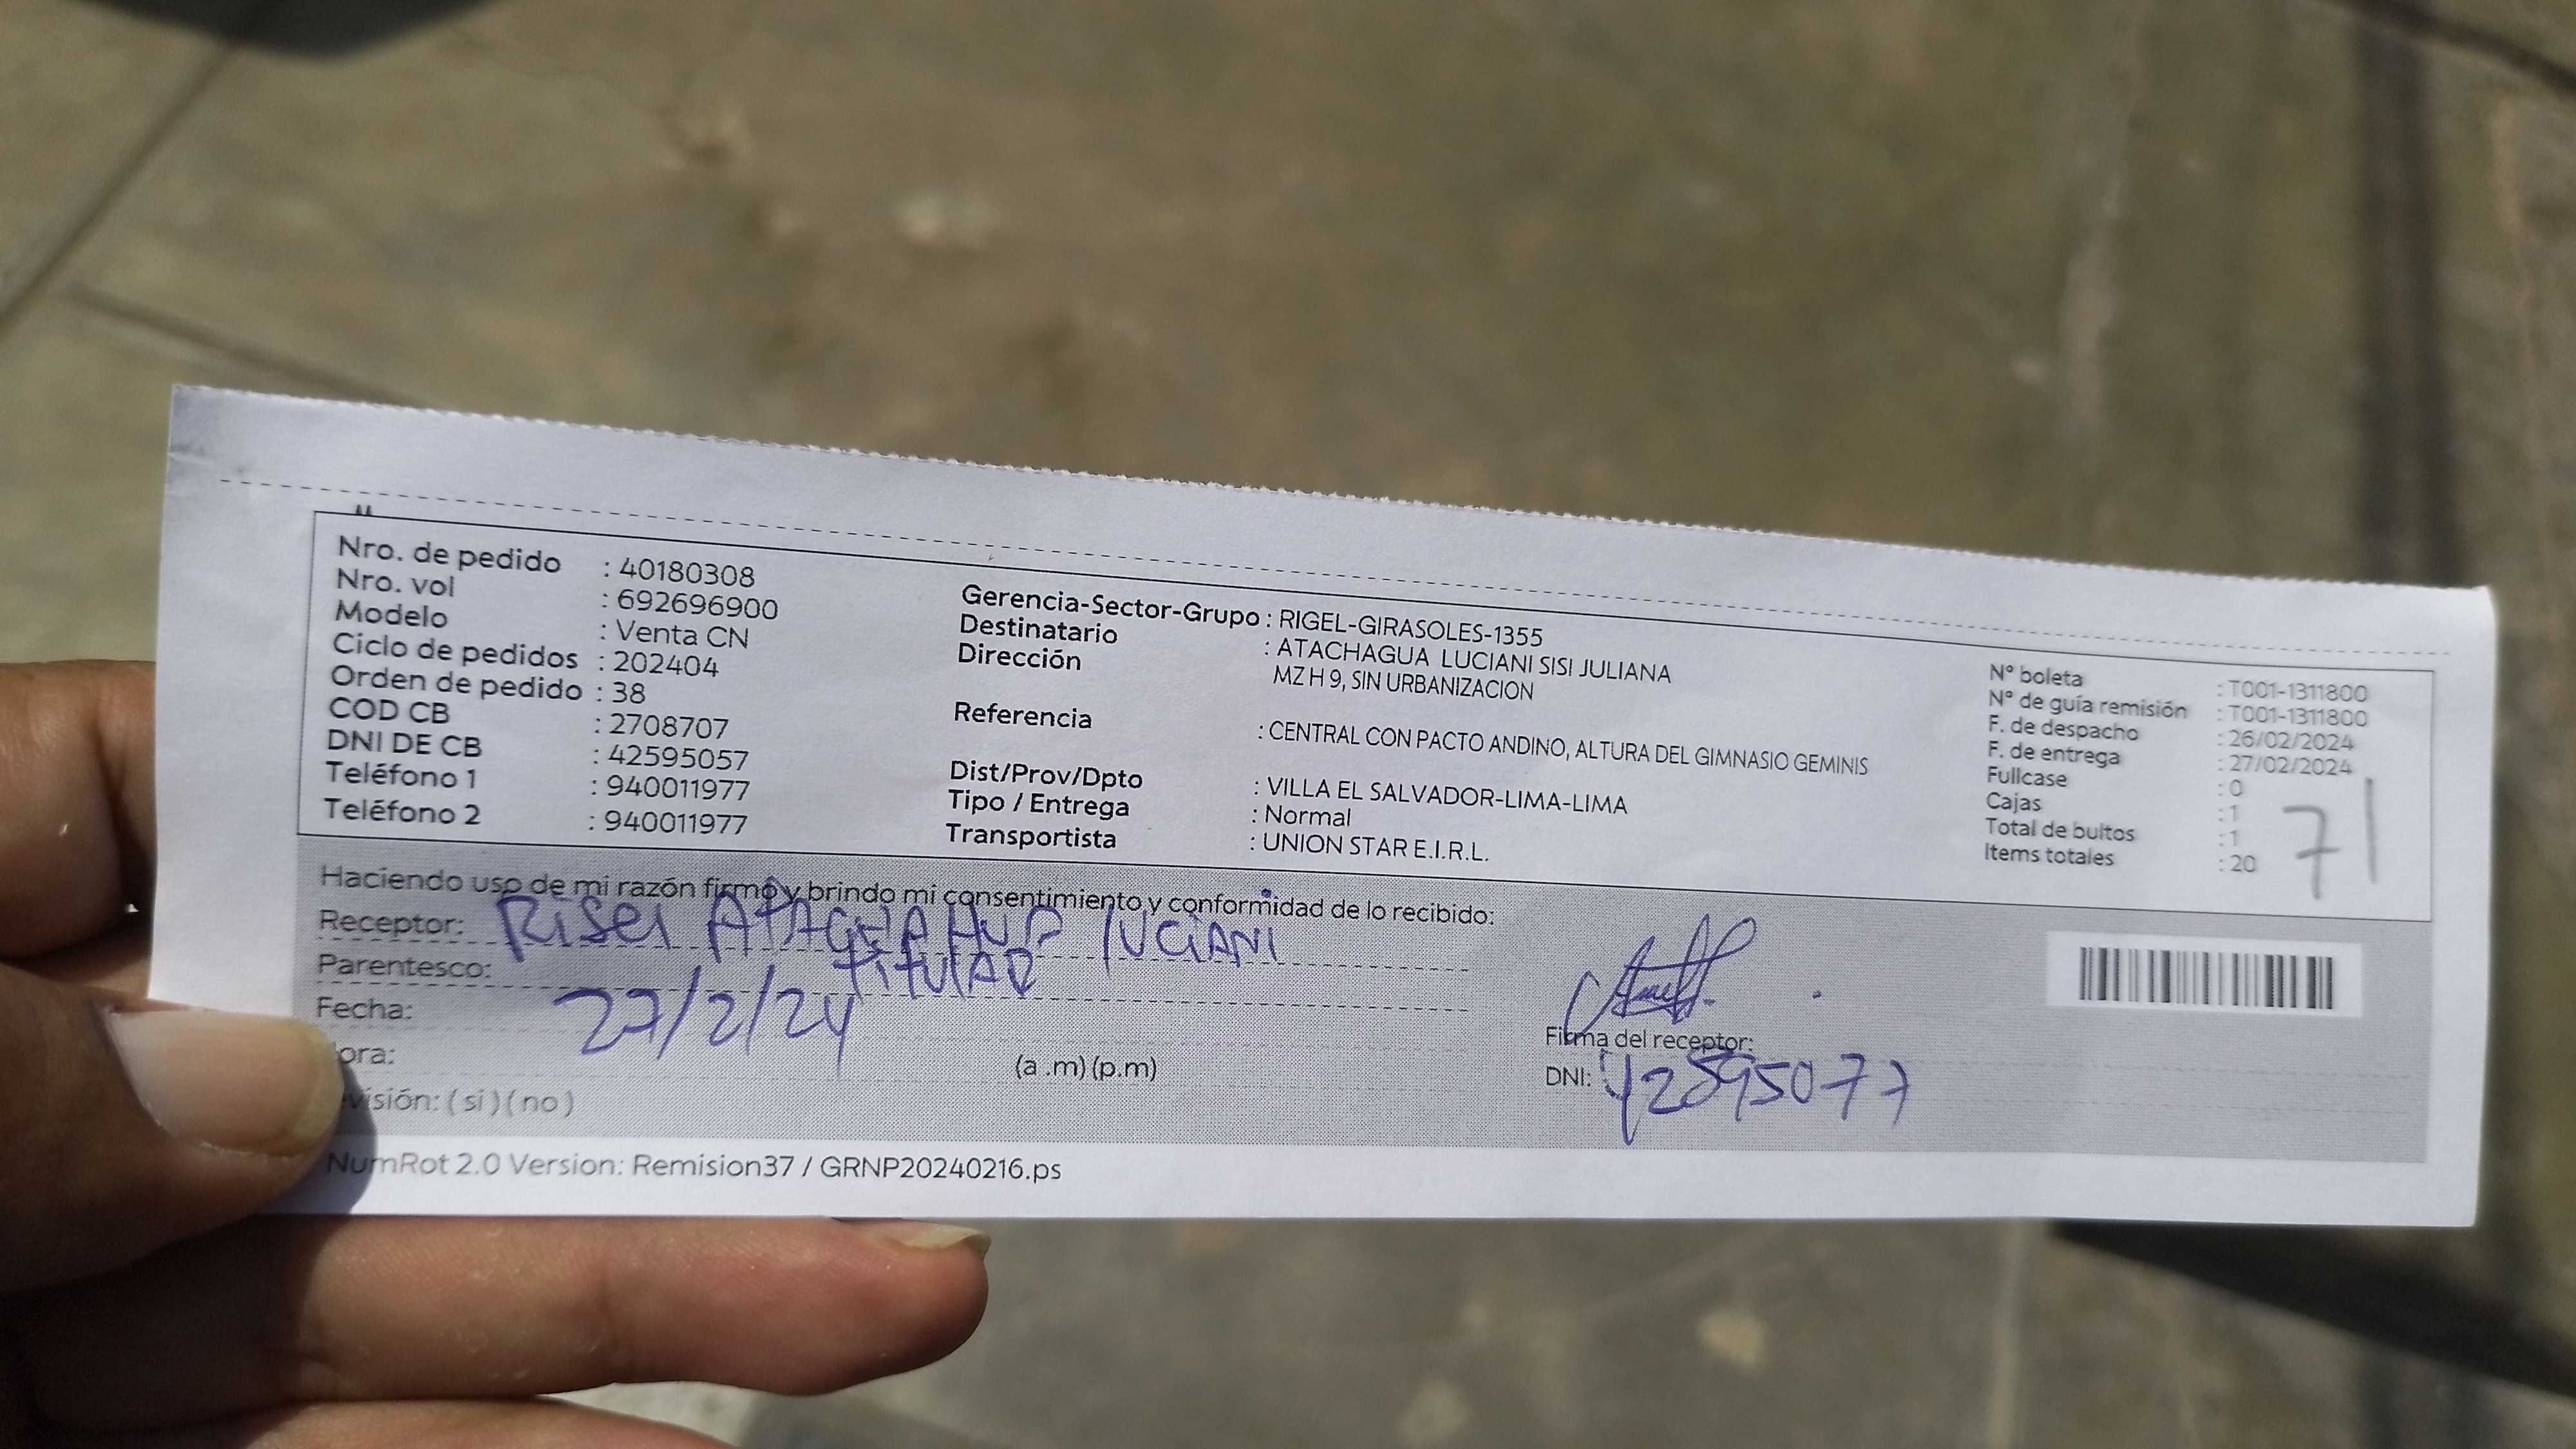 Nro. de pedido : 40180308
Nro. vol : 692696900
Modelo : Venta CN
Ciclo de pedidos : 202404
Orden de pedido : 38
COD CB : 2708707
DNI DE CB : 42595057
Teléfono 1 : 940011977
Teléfono 2 : 940011977
Gerencia-Sector-Grupo : RIGEL-GIRASOLES-1355
Destinatario : ATACHAGUA LUCIANI SISI JULIANA
Dirección MZ H 9, SIN URBANIZACION
Referencia : CENTRAL CON PACTO ANDINO, ALTURA DEL GIMNASIO GEMINIS
Dist/Prov/Dpto : VILLA EL SALVADOR-LIMA-LIMA
Tipo / Entrega : Normal
Transportista : UNION STAR E.I.R.L.
N° boleta : T001-1311800
N° de guía remisión : T001-1311800
F. de despacho : 26/02/2024
F. de entrega : 27/02/2024
Fullcase : 0
Cajas : 1
Total de bultos : 1
Items totales : 20
71
Haciendo uso de mi razón firmo y brindo mi consentimiento y conformidad de lo recibido:
Receptor: LUCIANI
Parentesco: TITULAR
Fecha: 27/2/24
ora: (a .m) (p.m)
visión: ( si ) ( no )
Firma del receptor:
DNI: 42595077
NumRot 2.0 Version: Remision37 / GRNP20240216.ps